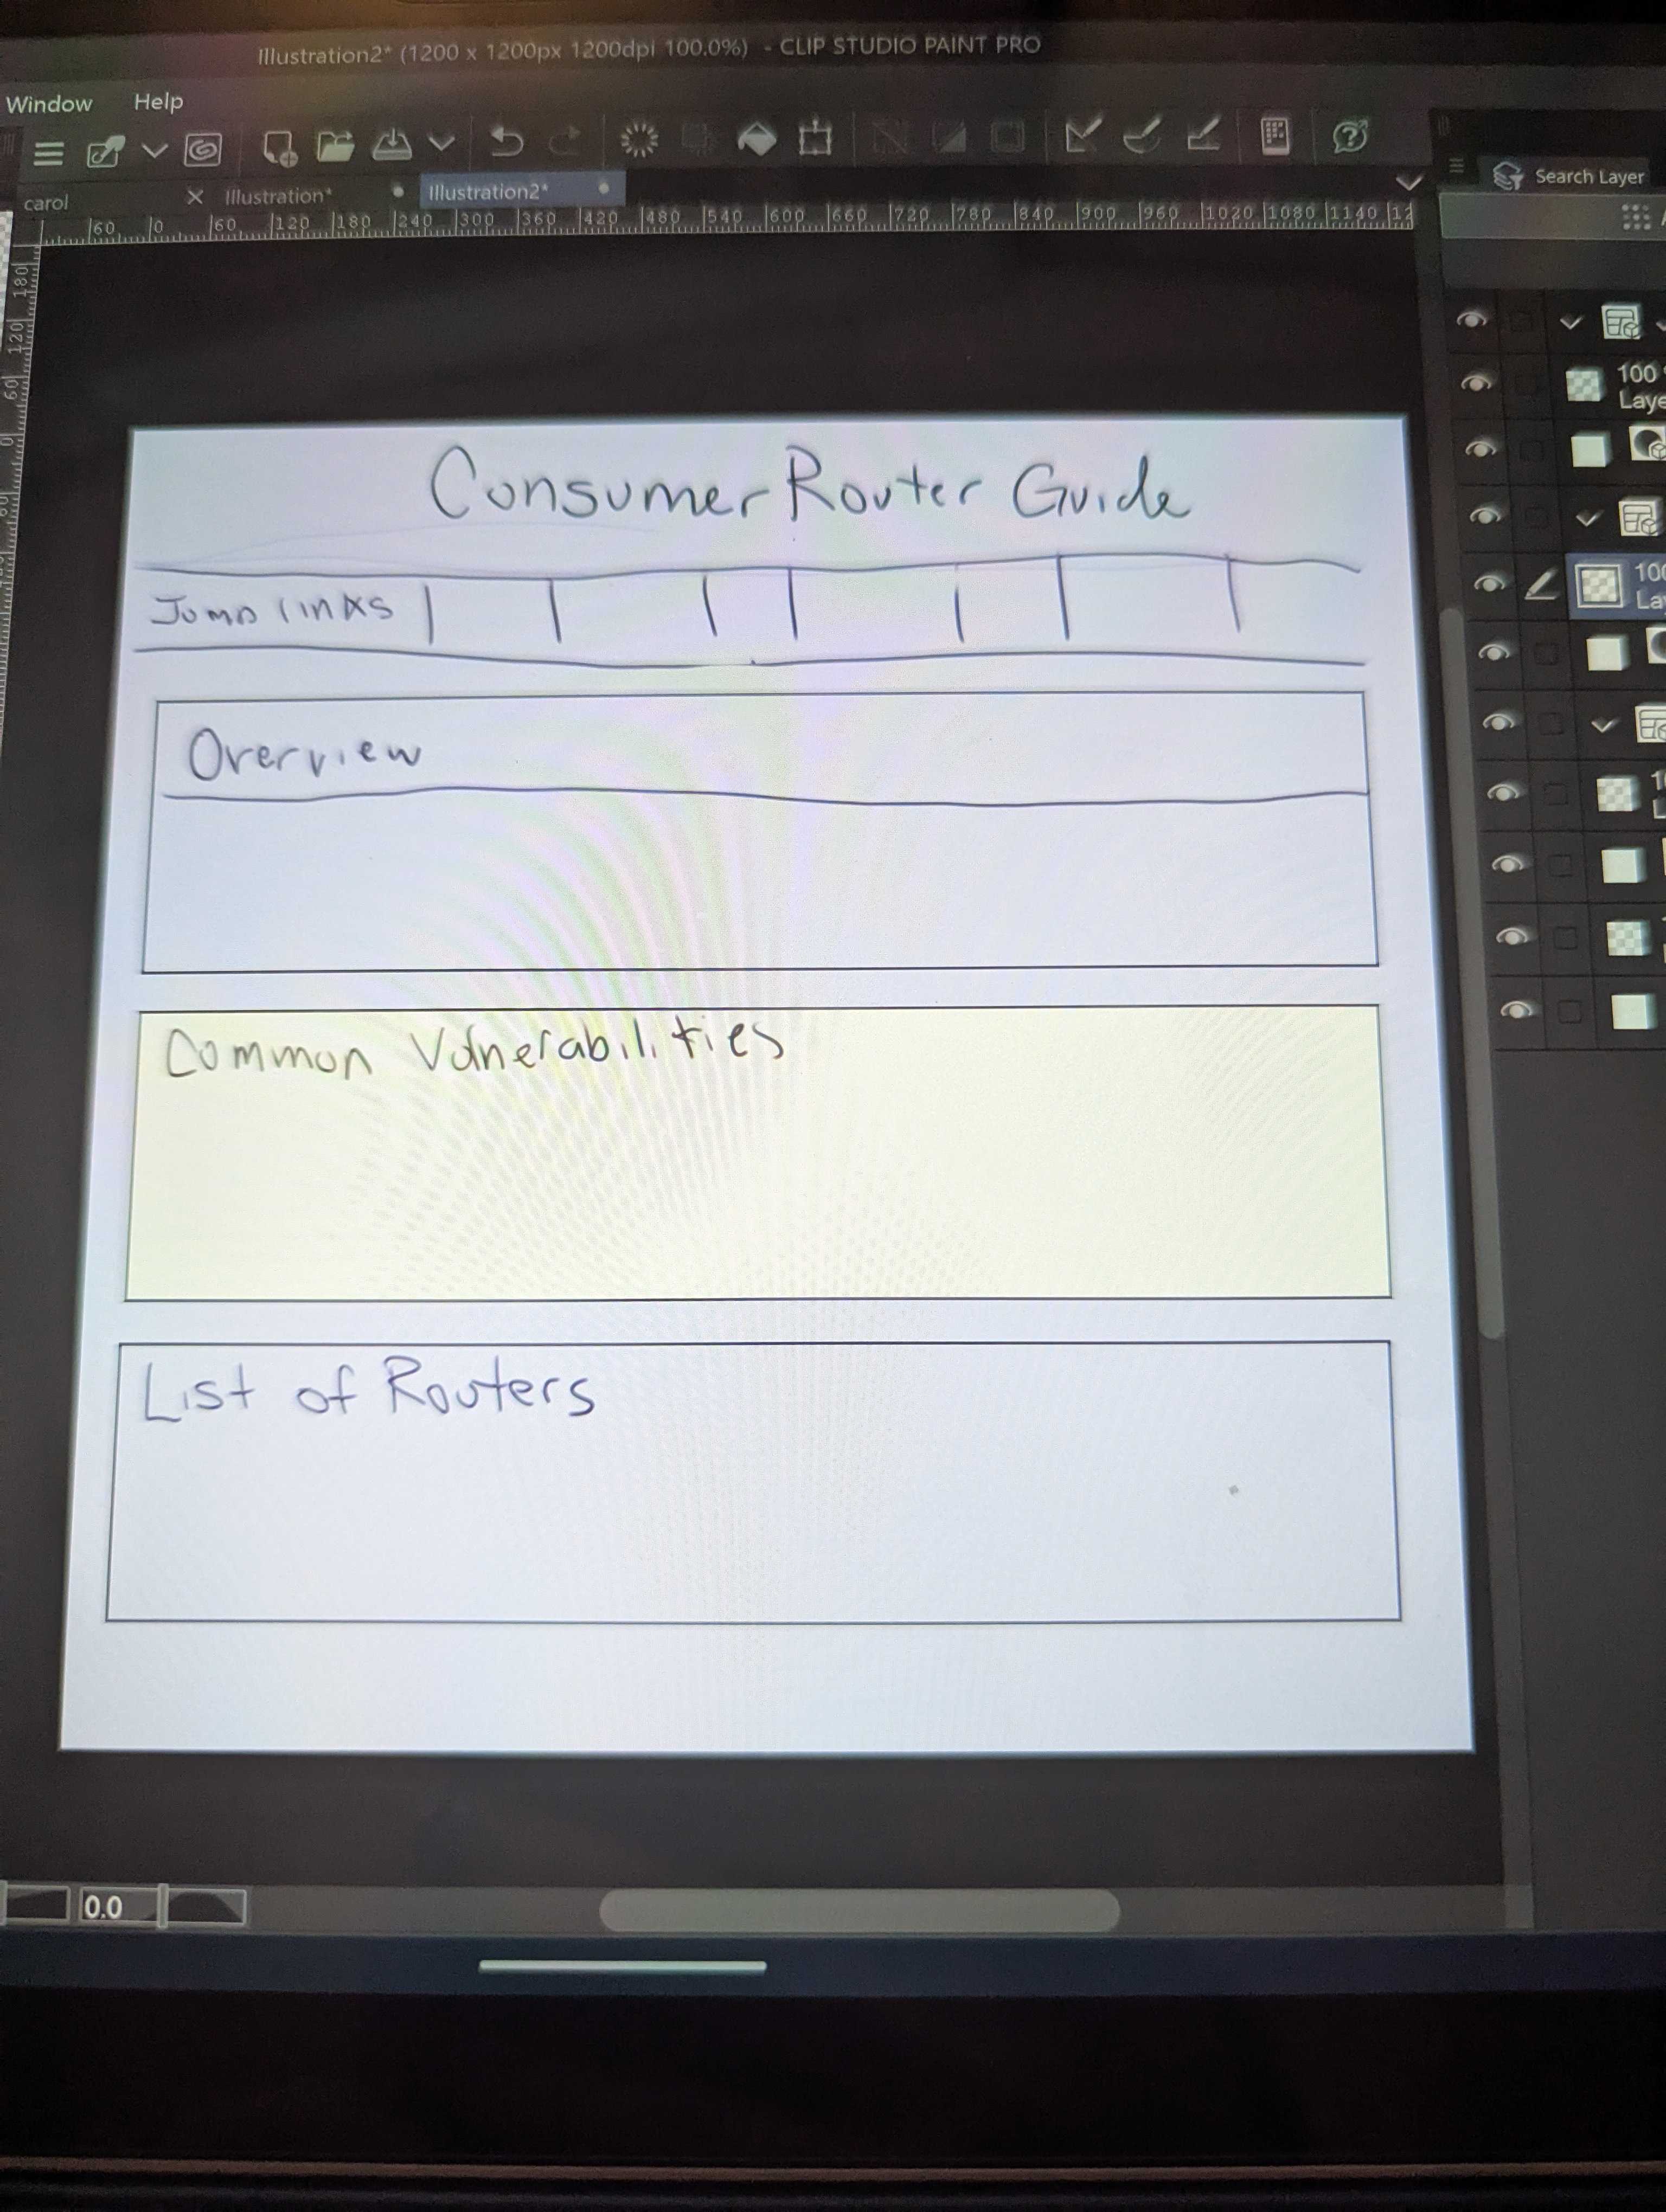 Illustration2* (1200 x 1200px 1200dpi 100.0%) - CLIP STUDIO PAINT PRO
Window Help
carol Illustration* Illustration2*
Search Layer
60 0 60 120 180 240 300 360 420 480 540 600 660 720 780 840 900 960 1020 1080 1140 12
180
120
60
0
100
Laye
Consumer Router Guide
Jump links
100
La
Overview
Common Vulnerabilities
List of Routers
0.0